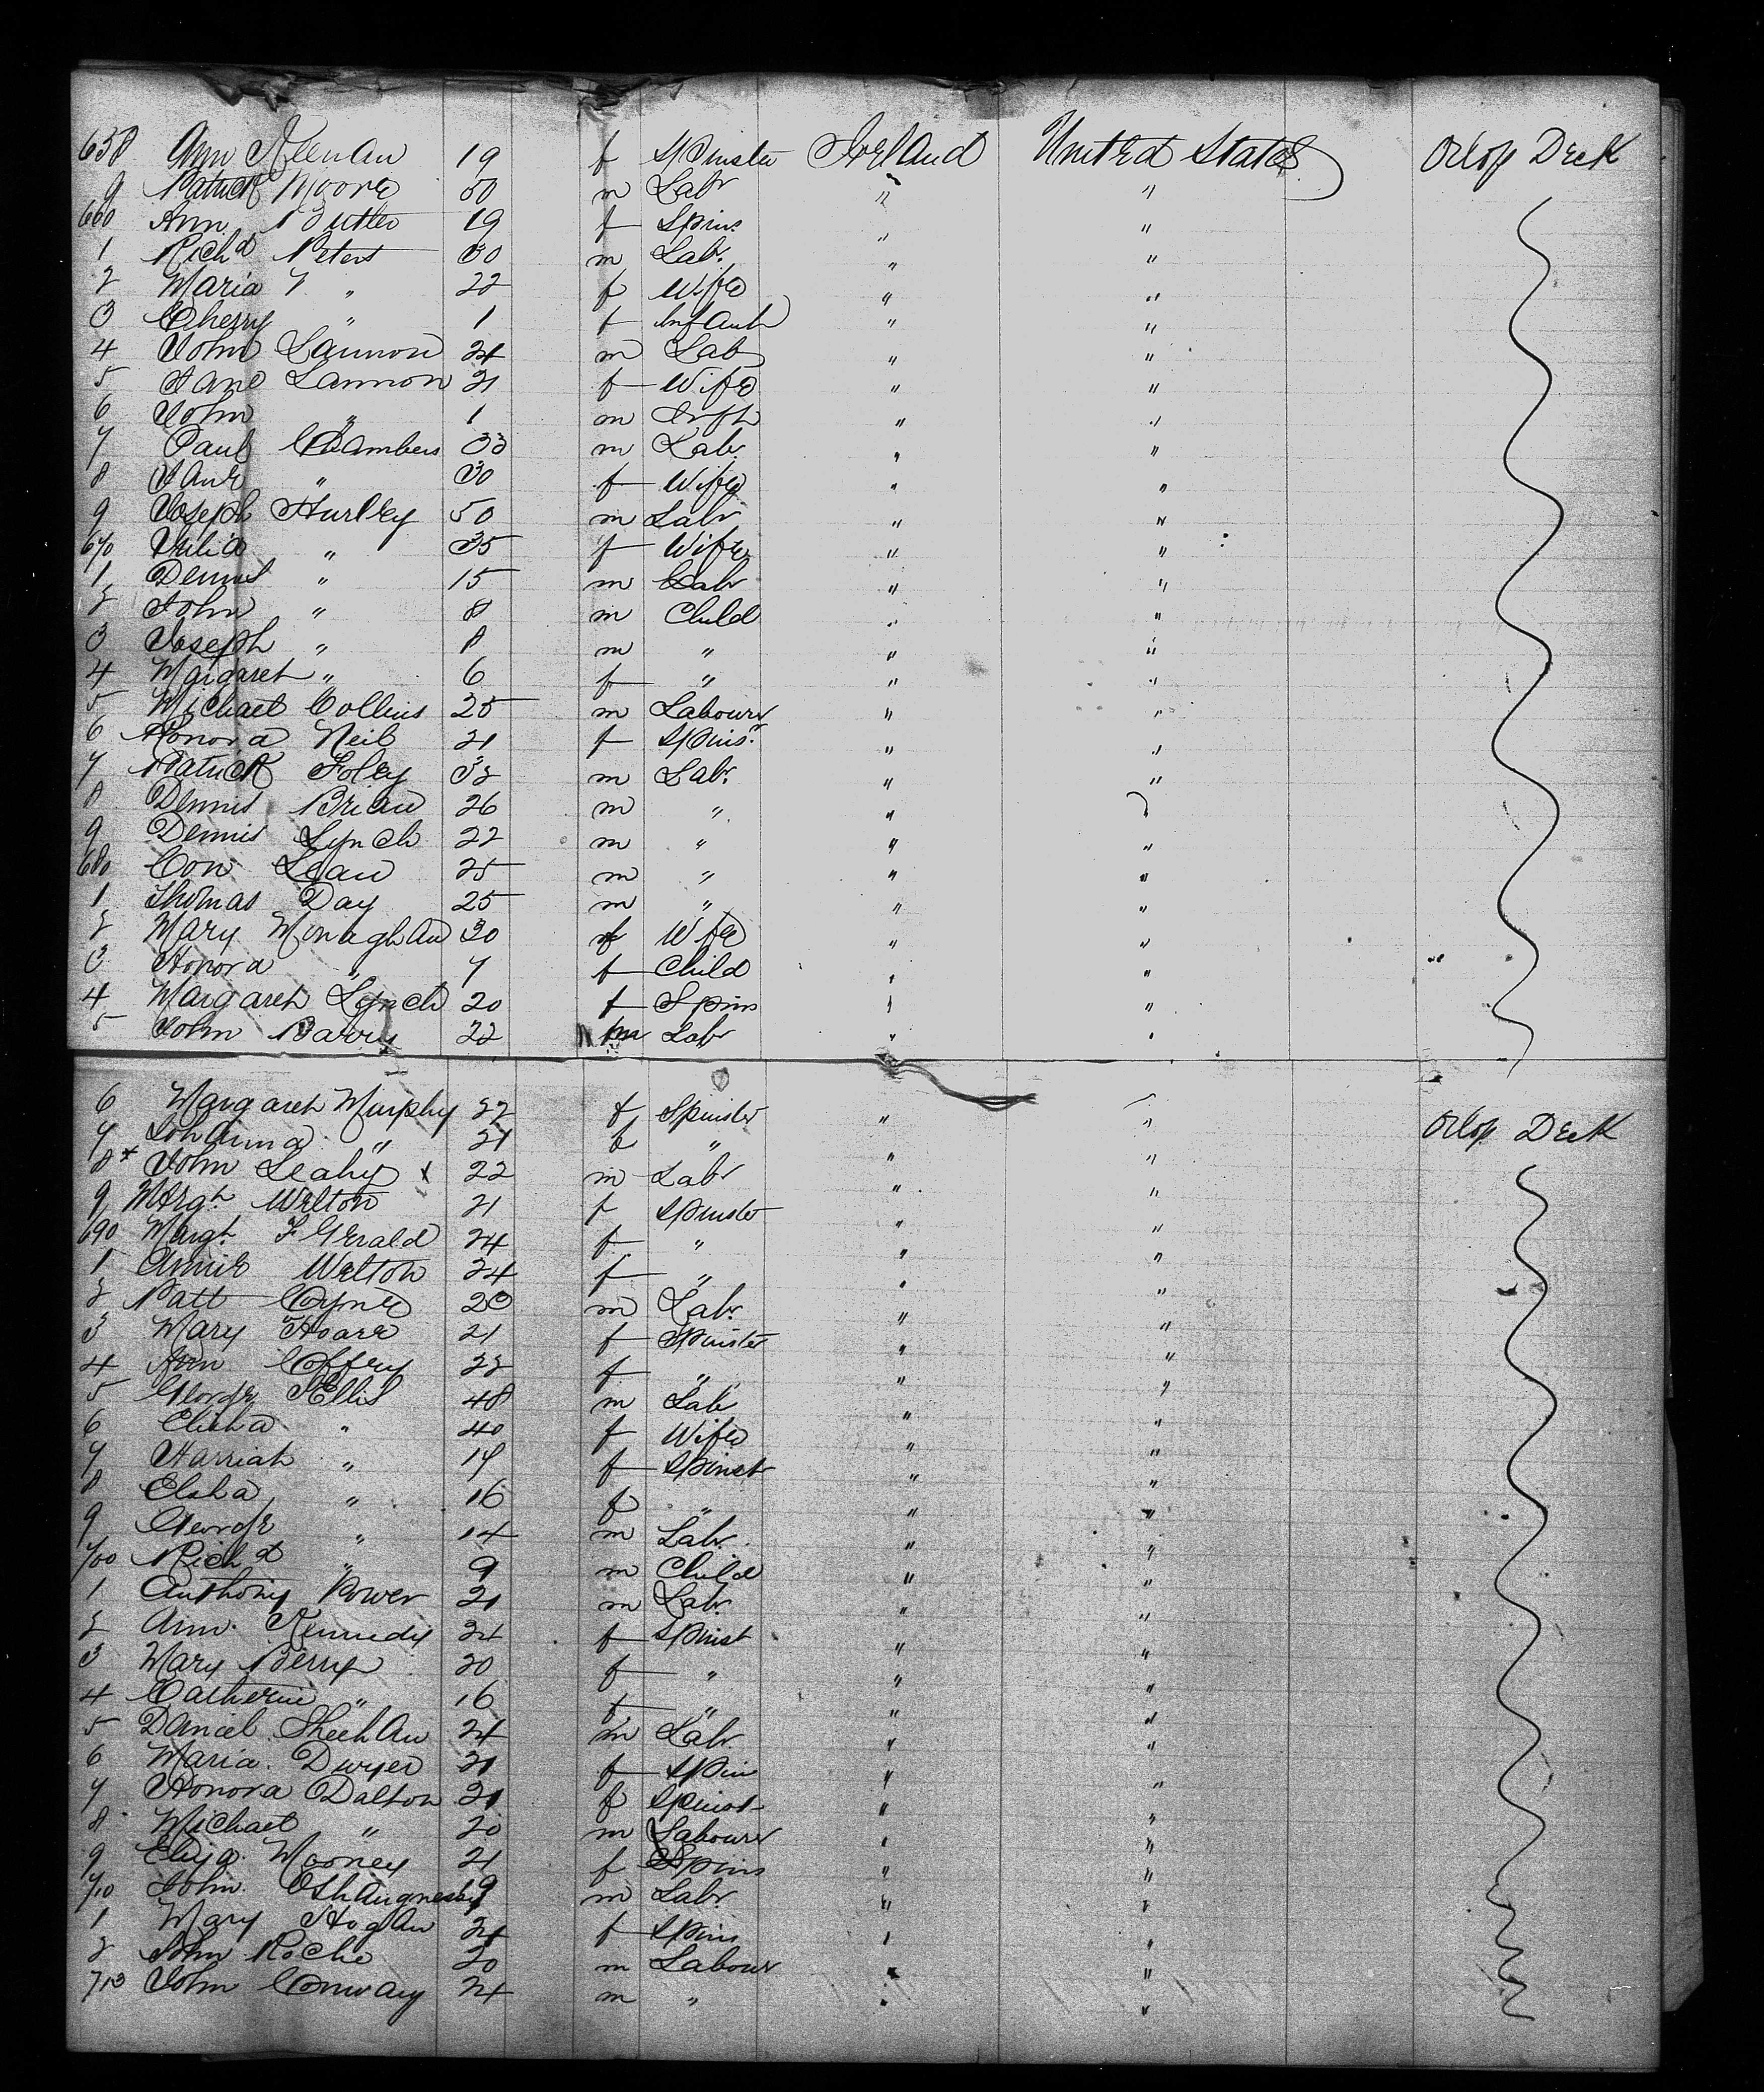 658 Ann Keenan 19 f Spinster Ireland United States Orlop Deck
9 Patrick Moore 50 m Labr " "
660 Ann Butler 19 f Spins. " "
1 Richd Peters 30 m Labr. " "
2 Maria " 22 f Wife " "
3 Cherry " 1 f Infant " "
4 John Lannon 24 m Lab " "
5 Jane Lannon 21 f Wife " "
6 John " 1 m Inft " "
7 Paul Chambers 33 m Labr. " "
8 Jane " 30 f Wife " "
9 Joseph Hurley 50 m Labr " "
670 Julia " 35 f Wife " "
1 Dennis " 15 m Labr " "
2 John " 8 m Child " "
3 Joseph " 8 m " " "
4 Margaret " 6 f " " "
5 Michael Collins 25 m Labourer " "
6 Honora Neil 21 f Spinsr " "
7 Patrick Foley 32 m Labr. " "
8 Dennis Brian 26 m " " "
9 Dennis Lynch 22 m " " "
680 Con Lean 25 m " " "
1 Thomas Day 25 m " " "
2 Mary Monaghan 30 f Wife " "
3 Honora " 7 f Child " "
4 Margaret Lynch 20 f Spins " "
5 John Barry 22 m Labr " "
6 Margaret Murphy 22 f Spinster " " Orlop Deck
7 Johanna " 21 f " " "
8 x John Leahy x 22 m Labr " "
9 Margt. Welton 21 f Spinster " "
690 Margt F Gerald 24 f " " "
1 Annie Welton 24 f " " "
2 Patt Coyne 20 m Labr. " "
3 Mary Hoare 21 f Spinster " "
4 Ann Coffey 22 f " " "
5 George Ellis 48 m Labr " "
6 Elisha " 40 f Wife " "
7 Harriat " 19 f Spinst " "
8 Elisha " 16 f " " "
9 George " 14 m Labr. " "
700 Richd " 9 m Child " "
1 Anthony Power 21 m Labr. " "
2 Ann Kennedy 24 f Spinst " "
3 Mary Berry 20 f " " "
4 Catherine " 16 f " " "
5 Daniel Sheehan 24 m Labr. " "
6 Maria Dwyer 21 f Spin " "
7 Honora Dalton 21 f Spinst " "
8 Michael " 20 m Labourer " "
9 Eliza Mooney 21 f Spins " "
710 John OShaugnesby 9 m Labr. " "
1 Mary Hogan 21 f Spins " "
2 John Roche 20 m Labour " "
713 John Conway 24 m " " "